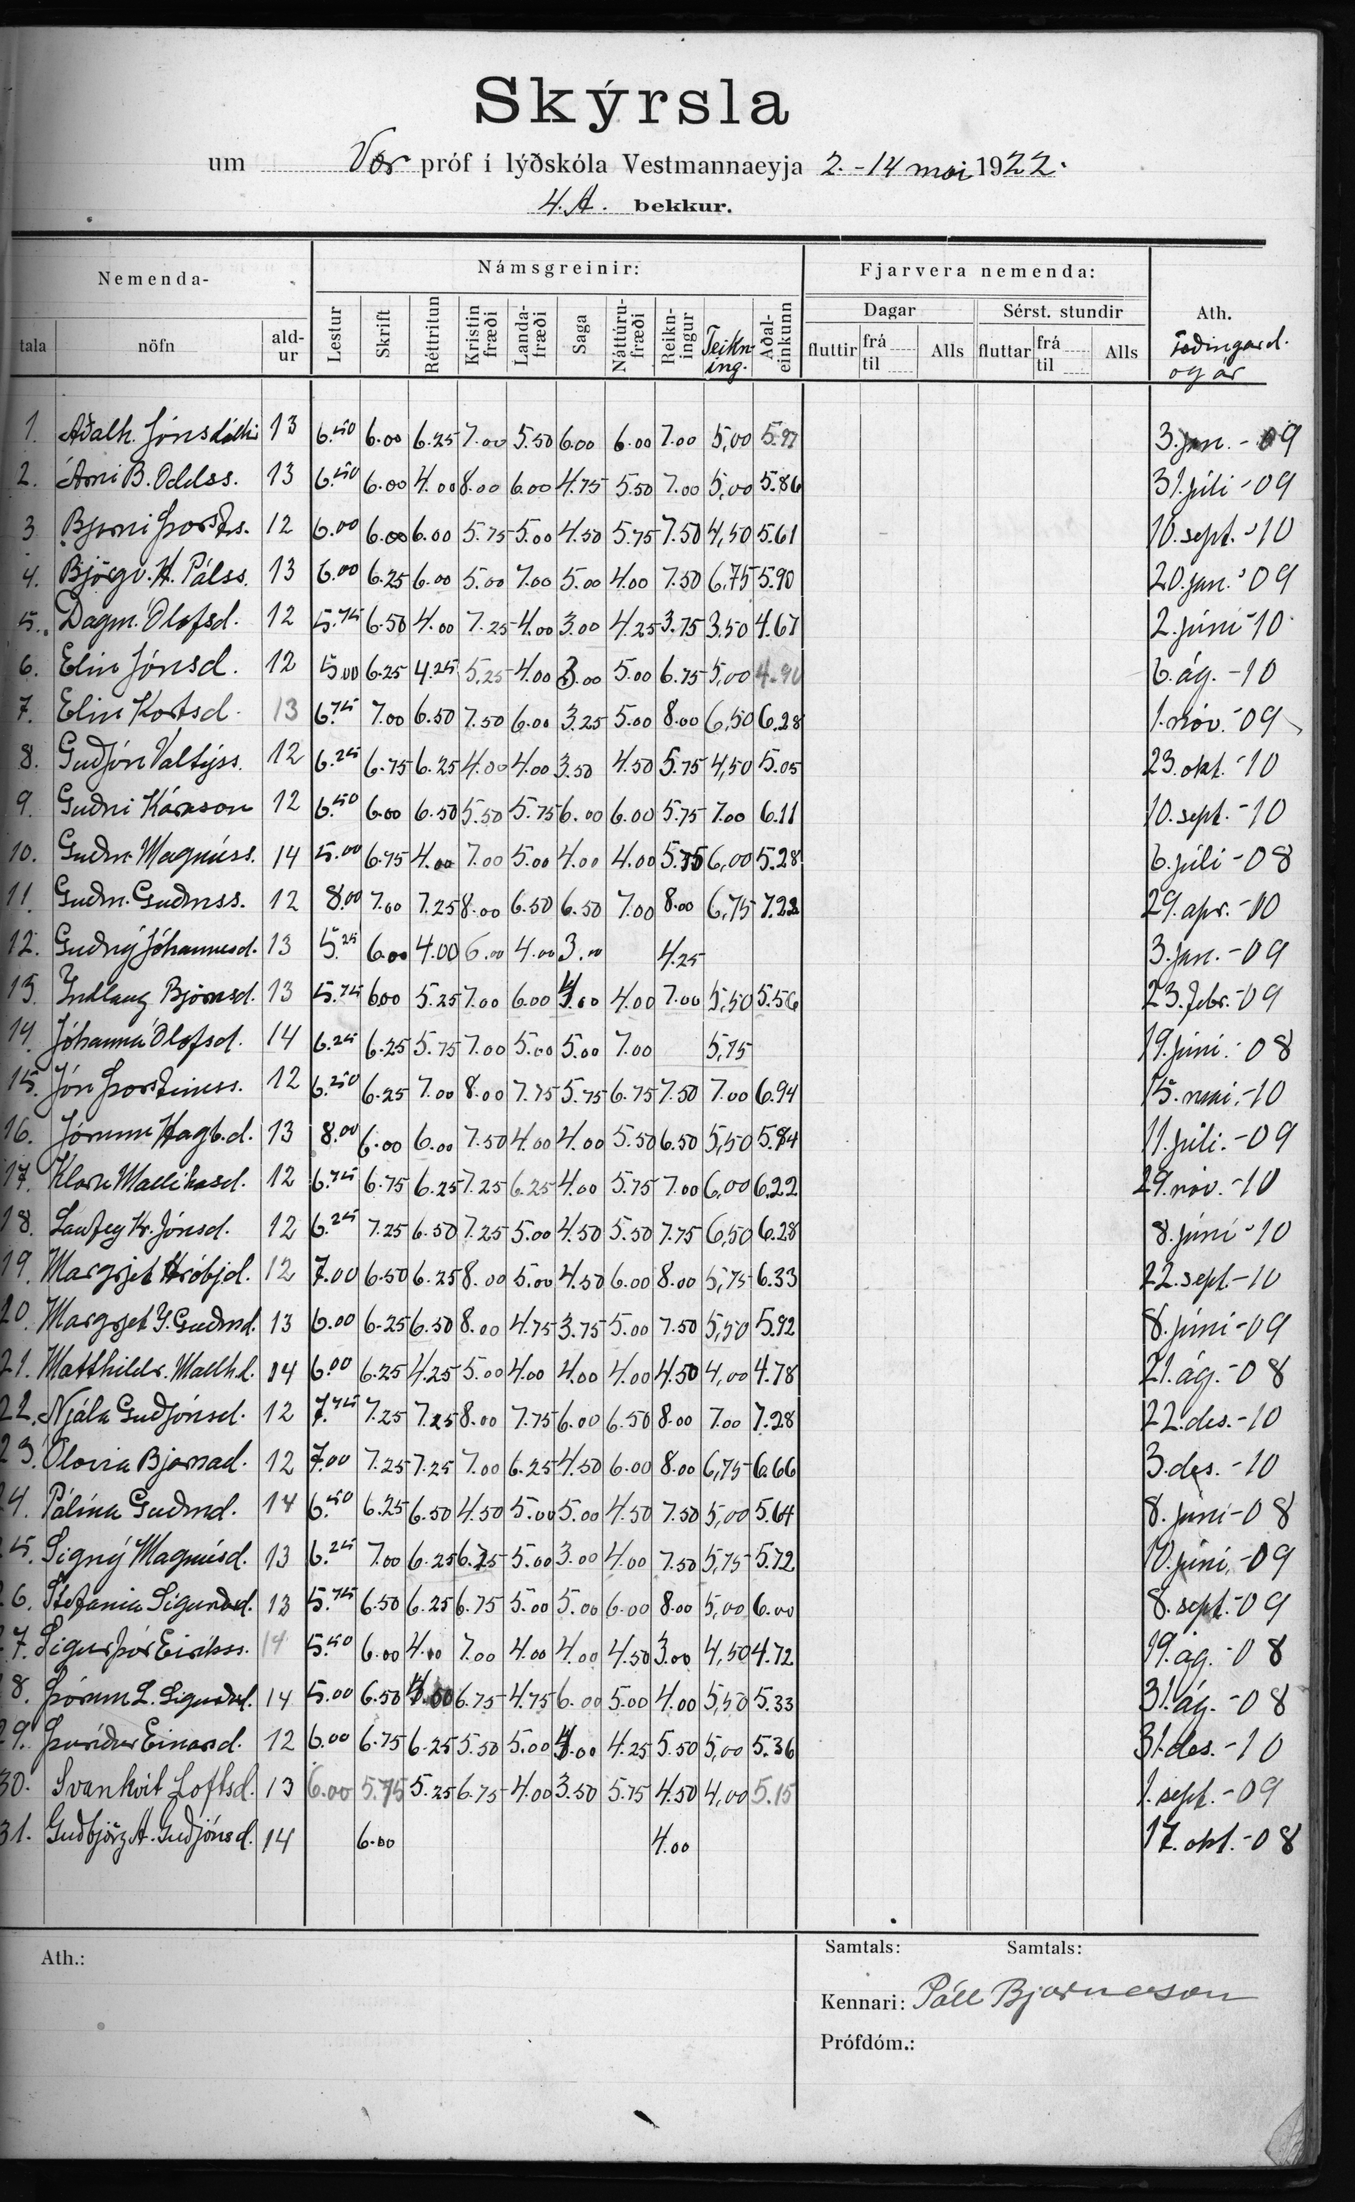 Skýrsla
um Vor próf í lýðskóla Vestmannaeyja 2.-14 maí 1922.
4. A. bekkur.
Nemenda- Námsgreinir: Fjarvera nemenda: Ath.
Dagar Sérst. stundir
tala nöfn ald-ur Lestur Skrift Réttritun Kristin fræði Landa-fræði Saga Náttúru-fræði Reikn-ingur Teikn-ing. Aðal-einkunn fluttir frá til Alls fluttar frá til Alls Fæðingard. og ár
1. Aðalh. Jónsdóttir 13 6.50 6.00 6.25 7.00 5.50 6.00 6.00 7.00 5,00 5.97 3. jan. - 09
2. Árni B. Oddss. 13 6.50 6.00 4.00 8.00 6.00 4.75 5.50 7.00 5,00 5.86 31. júlí - 09
3 Bjarni Þorsts. 12 6.00 6.00 6.00 5.75 5.00 4.50 5.75 7.50 4,50 5.61 10. sept. - 10
4. Björgv. H. Pálss. 13 6.00 6.25 6.00 5.00 7.00 5.00 4.00 7.50 6,75 5.90 20. jan. - 09
5. Dagm. Ólafsd. 12 5.75 6.50 4.00 7.25 4.00 3.00 4.25 3.75 3,50 4.67 2. júní - 10
6. Elín Jónsd. 12 5.00 6.25 4.25 5.25 4.00 3.00 5.00 6.75 5,00 4.90 6. ág. - 10
7. Elín Kortsd. 13 6.75 7.00 6.50 7.50 6.00 3.25 5.00 8.00 6,50 6.28 1. nóv. - 09
8. Guðjón Valtýss. 12 6.25 6.75 6.25 4.00 4.00 3.50 4.50 5.75 4,50 5.05 23. okt. - 10
9. Guðni Kárason 12 6.50 6.00 6.50 5.50 5.75 6.00 6.00 5.75 7.00 6.11 10. sept. - 10
10. Guðm. Magnúss. 14 5.00 6.75 4.00 7.00 5.00 4.00 4.00 5.75 6,00 5.28 6. júlí - 08
11. Guðm. Guðmss. 12 8.00 7.00 7.25 8.00 6.50 6.50 7.00 8.00 6,75 7.22 29. apr. - 10
12. Guðný Jóhannesd. 13 5.25 6.00 4.00 6.00 4.00 3.00 4.25 3. jan. - 09
13. Indlaug Björnsd. 13 5.75 6.00 5.25 7.00 6.00 4.00 4.00 7.00 5,50 5.56 23. febr. - 09
14. Jóhanna Ólafsd. 14 6.25 6.25 5.75 7.00 5.00 5.00 7.00 5,75 19. júní. - 08
15. Jón Þorsteinss. 12 6.50 6.25 7.00 8.00 7.75 5.75 6.75 7.50 7.00 6.94 15. maí. - 10
16. Jórunn Hagb.d. 13 8.00 6.00 6.00 7.50 4.00 4.00 5.50 6.50 5,50 5.84 11. júlí. - 09
17. Klara Matthíasd. 12 6.75 6.75 6.25 7.25 6.25 4.00 5.75 7.00 6,00 6.22 29. nóv. - 10
18. Laufey Kr. Jónsd. 12 6.25 7.25 6.50 7.25 5.00 4.50 5.50 7.75 6,50 6.28 8. júní - 10
19. Margrjet Hróbjd. 12 7.00 6.50 6.25 8.00 5.00 4.50 6.00 8.00 5,75 6.33 22. sept. - 10
20. Margrjet Y. Guðmd. 13 6.00 6.25 6.50 8.00 4.75 3.75 5.00 7.50 5,50 5.92 8. júní - 09
21. Matthildr. Matthd. 14 6.00 6.25 4.25 5.00 4.00 4.00 4.00 4.50 4,00 4.78 21. ág. - 08
22. Njála Guðjónsd. 12 7.75 7.25 7.25 8.00 7.75 6.00 6.50 8.00 7.00 7.28 22. des. - 10
23. Ólavia Bjarnad. 12 7.00 7.25 7.25 7.00 6.25 4.50 6.00 8.00 6,75 6.66 3. des. - 10
24. Pálína Guðmd. 14 6.50 6.25 6.50 4.50 5.00 5.00 4.50 7.50 5,00 5.64 8. júní - 08
25. Signý Magnúsd. 13 6.25 7.00 6.25 6.75 5.00 3.00 4.00 7.50 5,75 5.72 10. júní, - 09
26. Stefanía Sigurðard. 13 5.75 6.50 6.25 6.75 5.00 5.00 6.00 8.00 5,00 6.00 8. sept. - 09
27. Sigurþór Eiríkss. 14 5.50 6.00 4.00 7.00 4.00 4.00 4.50 3.00 4,50 4.72 19. ág. - 08
28. Þórunn L. Sigurðard. 14 5.00 6.50 4.00 6.75 4.75 6.00 5.00 4.00 5,50 5.33 31. ág. - 08
29. Þuríður Einarsd. 12 6.00 6.75 6.25 5.50 5.00 4.00 4.25 5.50 5,00 5.36 31. des. - 10
30. Svanhvít Loftsd. 13 6.00 5.75 5.25 6.75 4.00 3.50 5.75 4.50 4,00 5.15 1. sept. - 09
31. Guðbjörg A. Guðjónsd. 14 6.00 4.00 17. okt. - 08
Ath.: Samtals: Samtals:
Kennari: Páll Bjarnason
Prófdóm.: